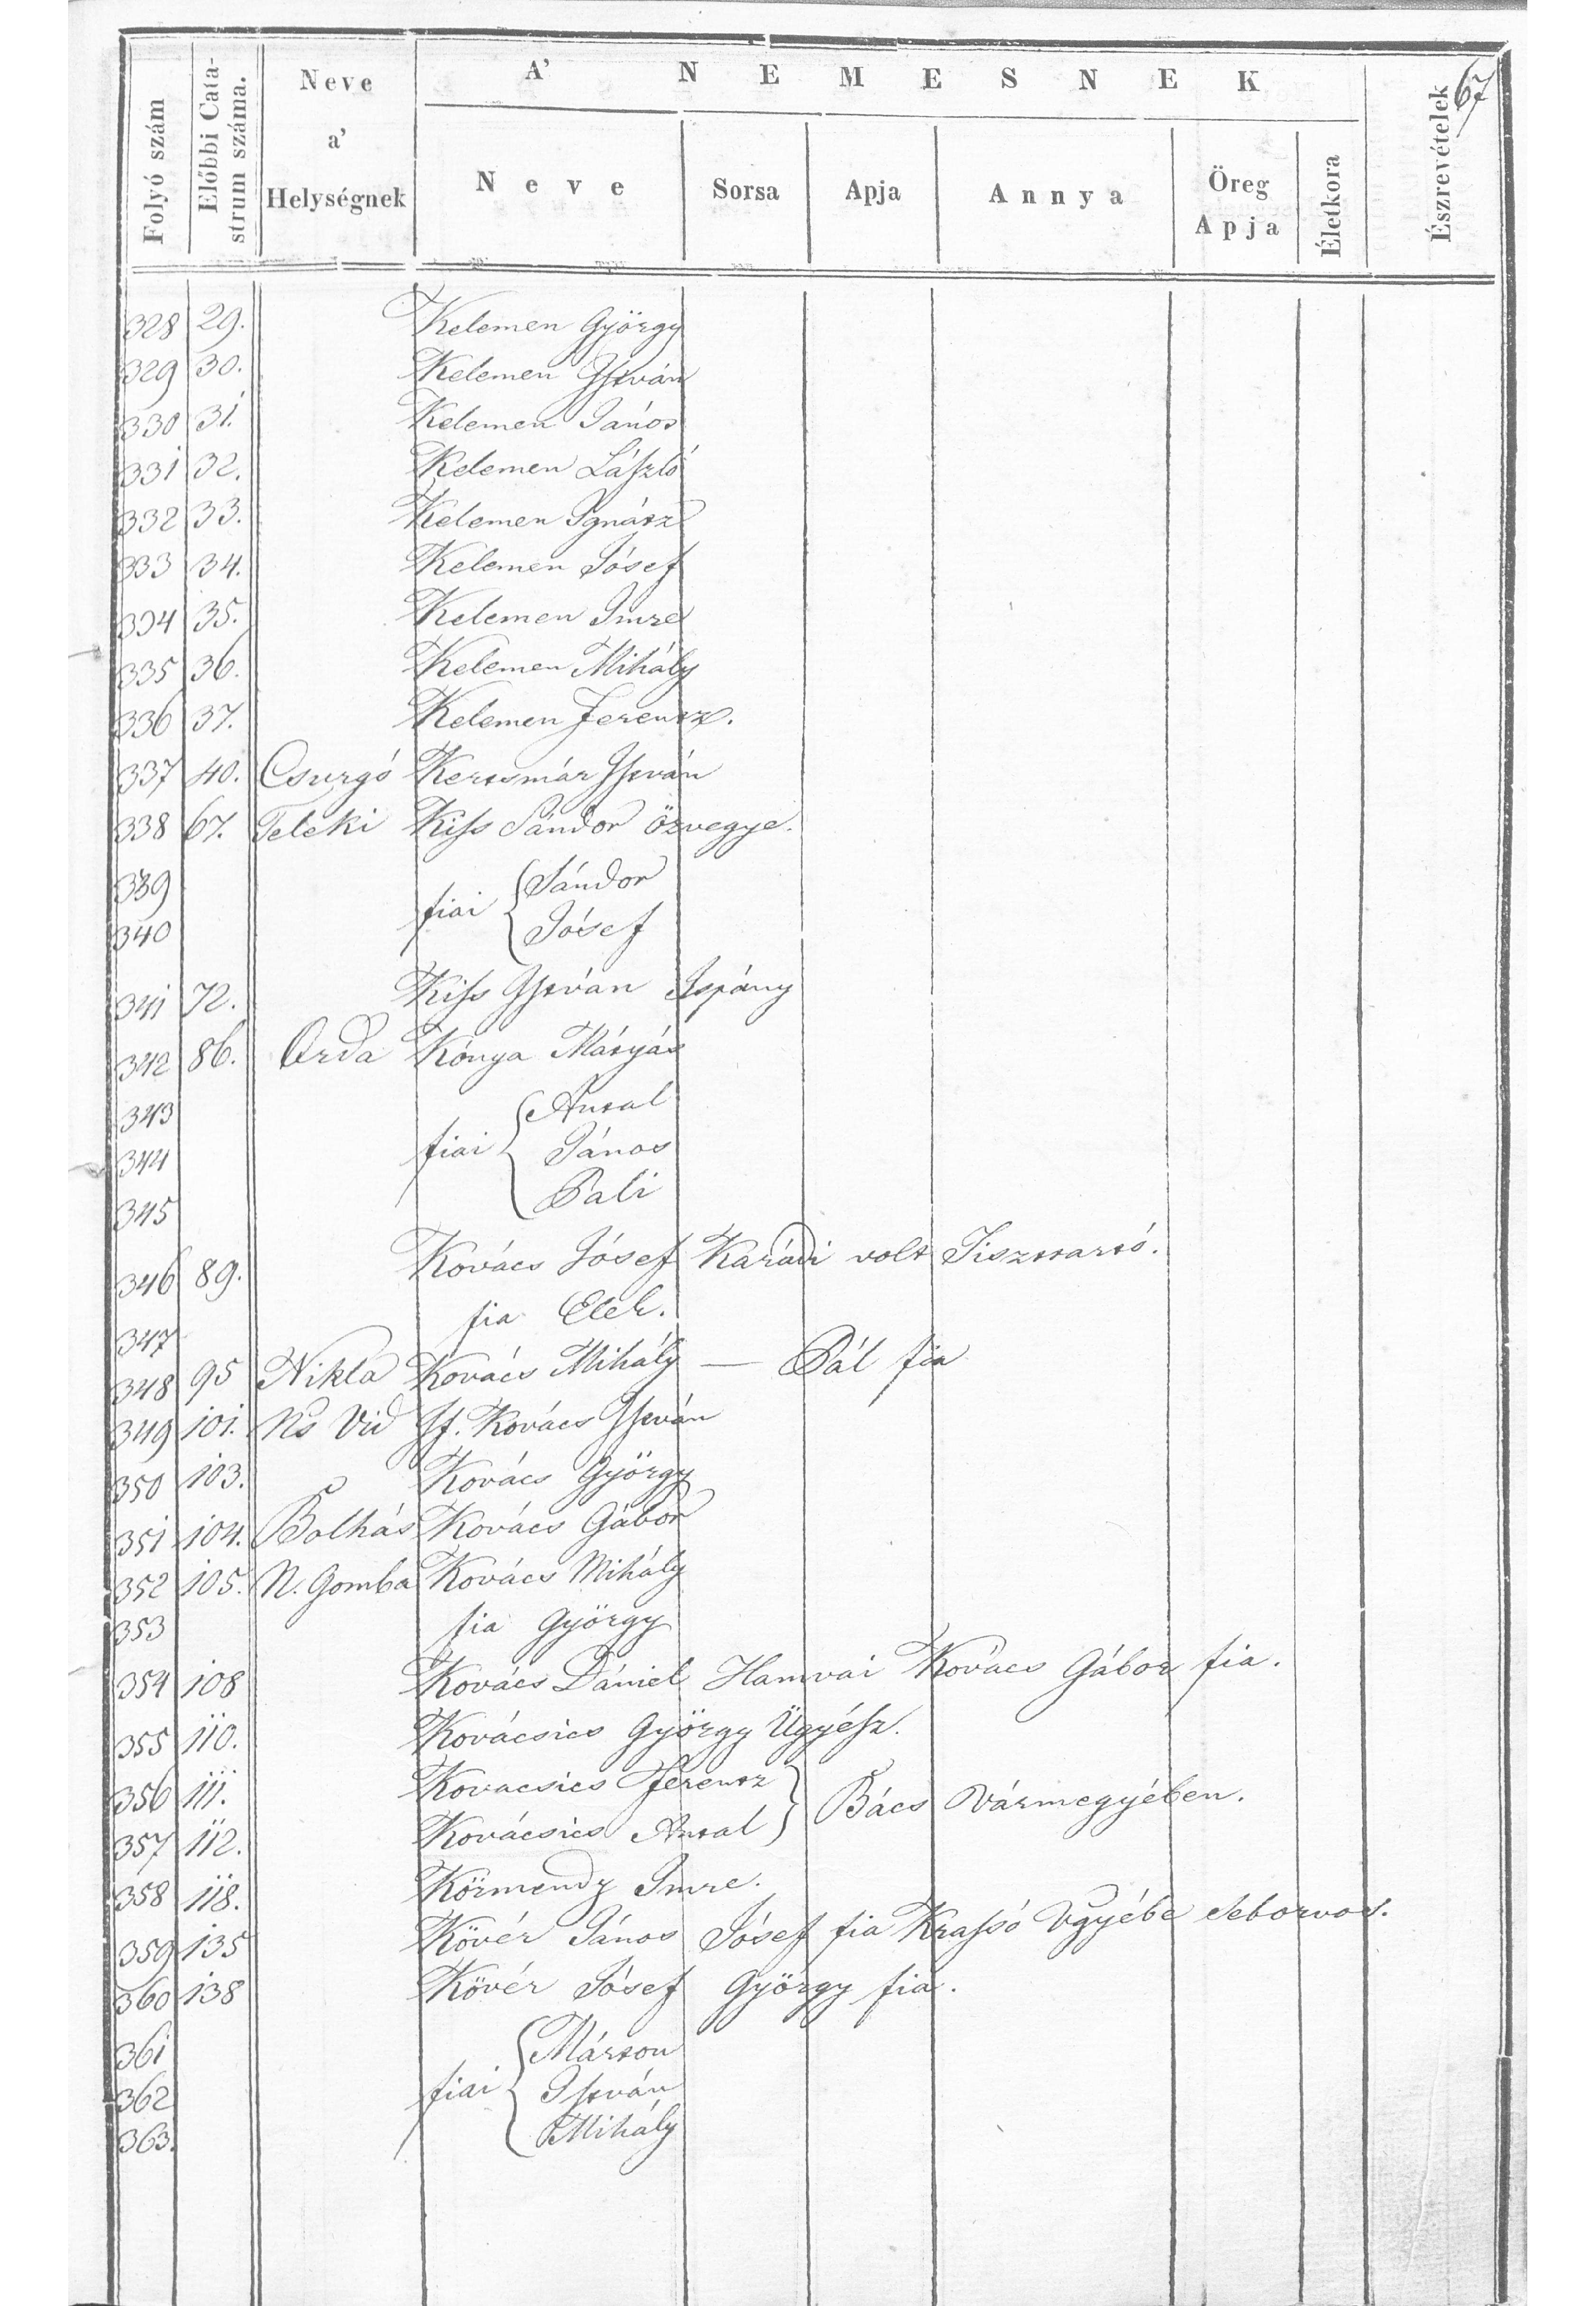 67
Folyó szám
Előbbi Cata-
strum száma.
Neve
a'
Helységnek
A' NEMESNEK
Neve
Sorsa
Apja
Annya
Öreg
Apja
Életkora
Észrevételek
328 29. Kelemen György
329 30. Kelemen István
330 31. Kelemen János
331 32. Kelemen László
332 33. Kelemen Ignátz
333 34. Kelemen Jósef
334 35. Kelemen Imre
335 36. Kelemen Mihály
336 37. Kelemen Ferentz.
337 40. Csurgó Kertsmár István
338 67. Teleki Kiss Sándor özvegye.
339 fiai Sándor
340 Jósef
341 72. Kiss István Ispány
342 86. Orda Kónya Mátyás
343 Antal
344 fiai János
345 Pali
346 89. Kovács Jósef Karádi volt Tiszttartó.
347 fia Elek.
348 95 Nikla Kovács Mihály — Pál fia
349 101. Ns Vid If. Kovács István
350 103. Kovács György
351 104. Bolhás Kovács Gábor
352 105. N. Gomba Kovács Mihály
353 fia György
354 108 Kovács Dániel Hamvai Kovács Gábor fia.
355 110. Kovácsics György Ügyész.
356 111. Kovacsics Ferentz
Bács Vármegyében.
357 112. Kovácsics Antal
358 118. Körmendy Imre.
359 135 Kövér János Jósef fia Krassó Vgyébe Seborvos.
360 138 Kövér Jósef György fia.
361 Márton
362 fiai István
363. Mihály